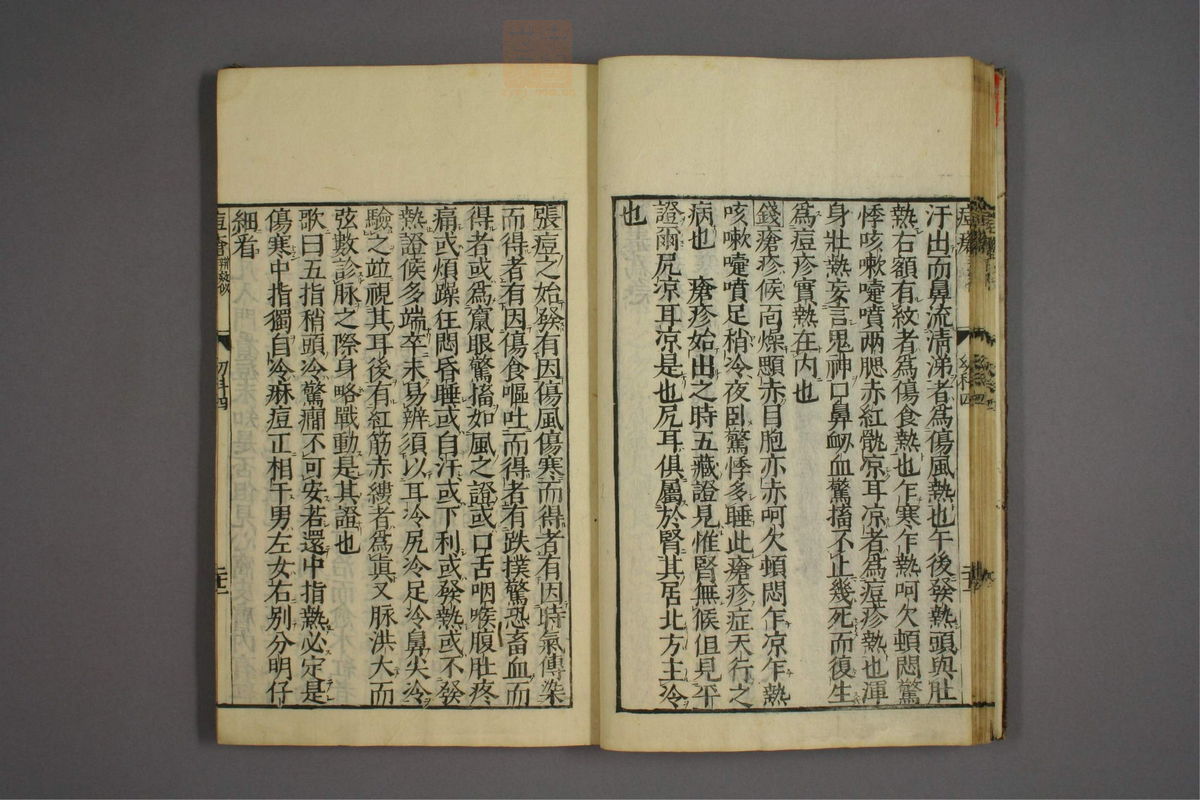 汗出而鼻流清涕者為傷風熱也午後發熱頭與肚
熱右額有紋者為傷食熱也乍寒乍熱呵欠頓悶驚
悸咳嗽嚏噴兩腮赤紅骩凉耳凉者為痘疹熱也渾
身壯熱妄言鬼神口鼻衂血驚搐不止幾死而復生
為痘疹實熱在内也
錢瘡疹候面燥顋赤目胞亦赤呵欠頓悶乍凉乍熱
咳嗽嚏噴足稍冷夜卧驚悸多睡此瘡疹症天行之
病也　瘡疹始出之時五藏證見惟腎無候但見平
證爾尻凉耳凉是也尻耳俱屬於腎其居北方主冷
也
張痘之始發有因傷風傷寒而得者有因時氣傳染
而得者有因傷食嘔吐而得者有跌撲驚恐畜血而
得者或為竄眼驚搐如風之證或口舌咽喉腹肚疼
痛或煩躁狂悶昏睡或自汗或下利或發熱或不發
熱證候多端卒未易辨須以耳冷尻冷足冷鼻尖冷
驗之竝視其耳後有紅筋赤縷者為眞又脉洪大而
弦數診脉之際身略戰動是其證也
歌曰五指稍頭冷驚癇不可安若還中指熱必定是
傷寒中指獨自冷痳痘正相干男左女右别分明仔
細看